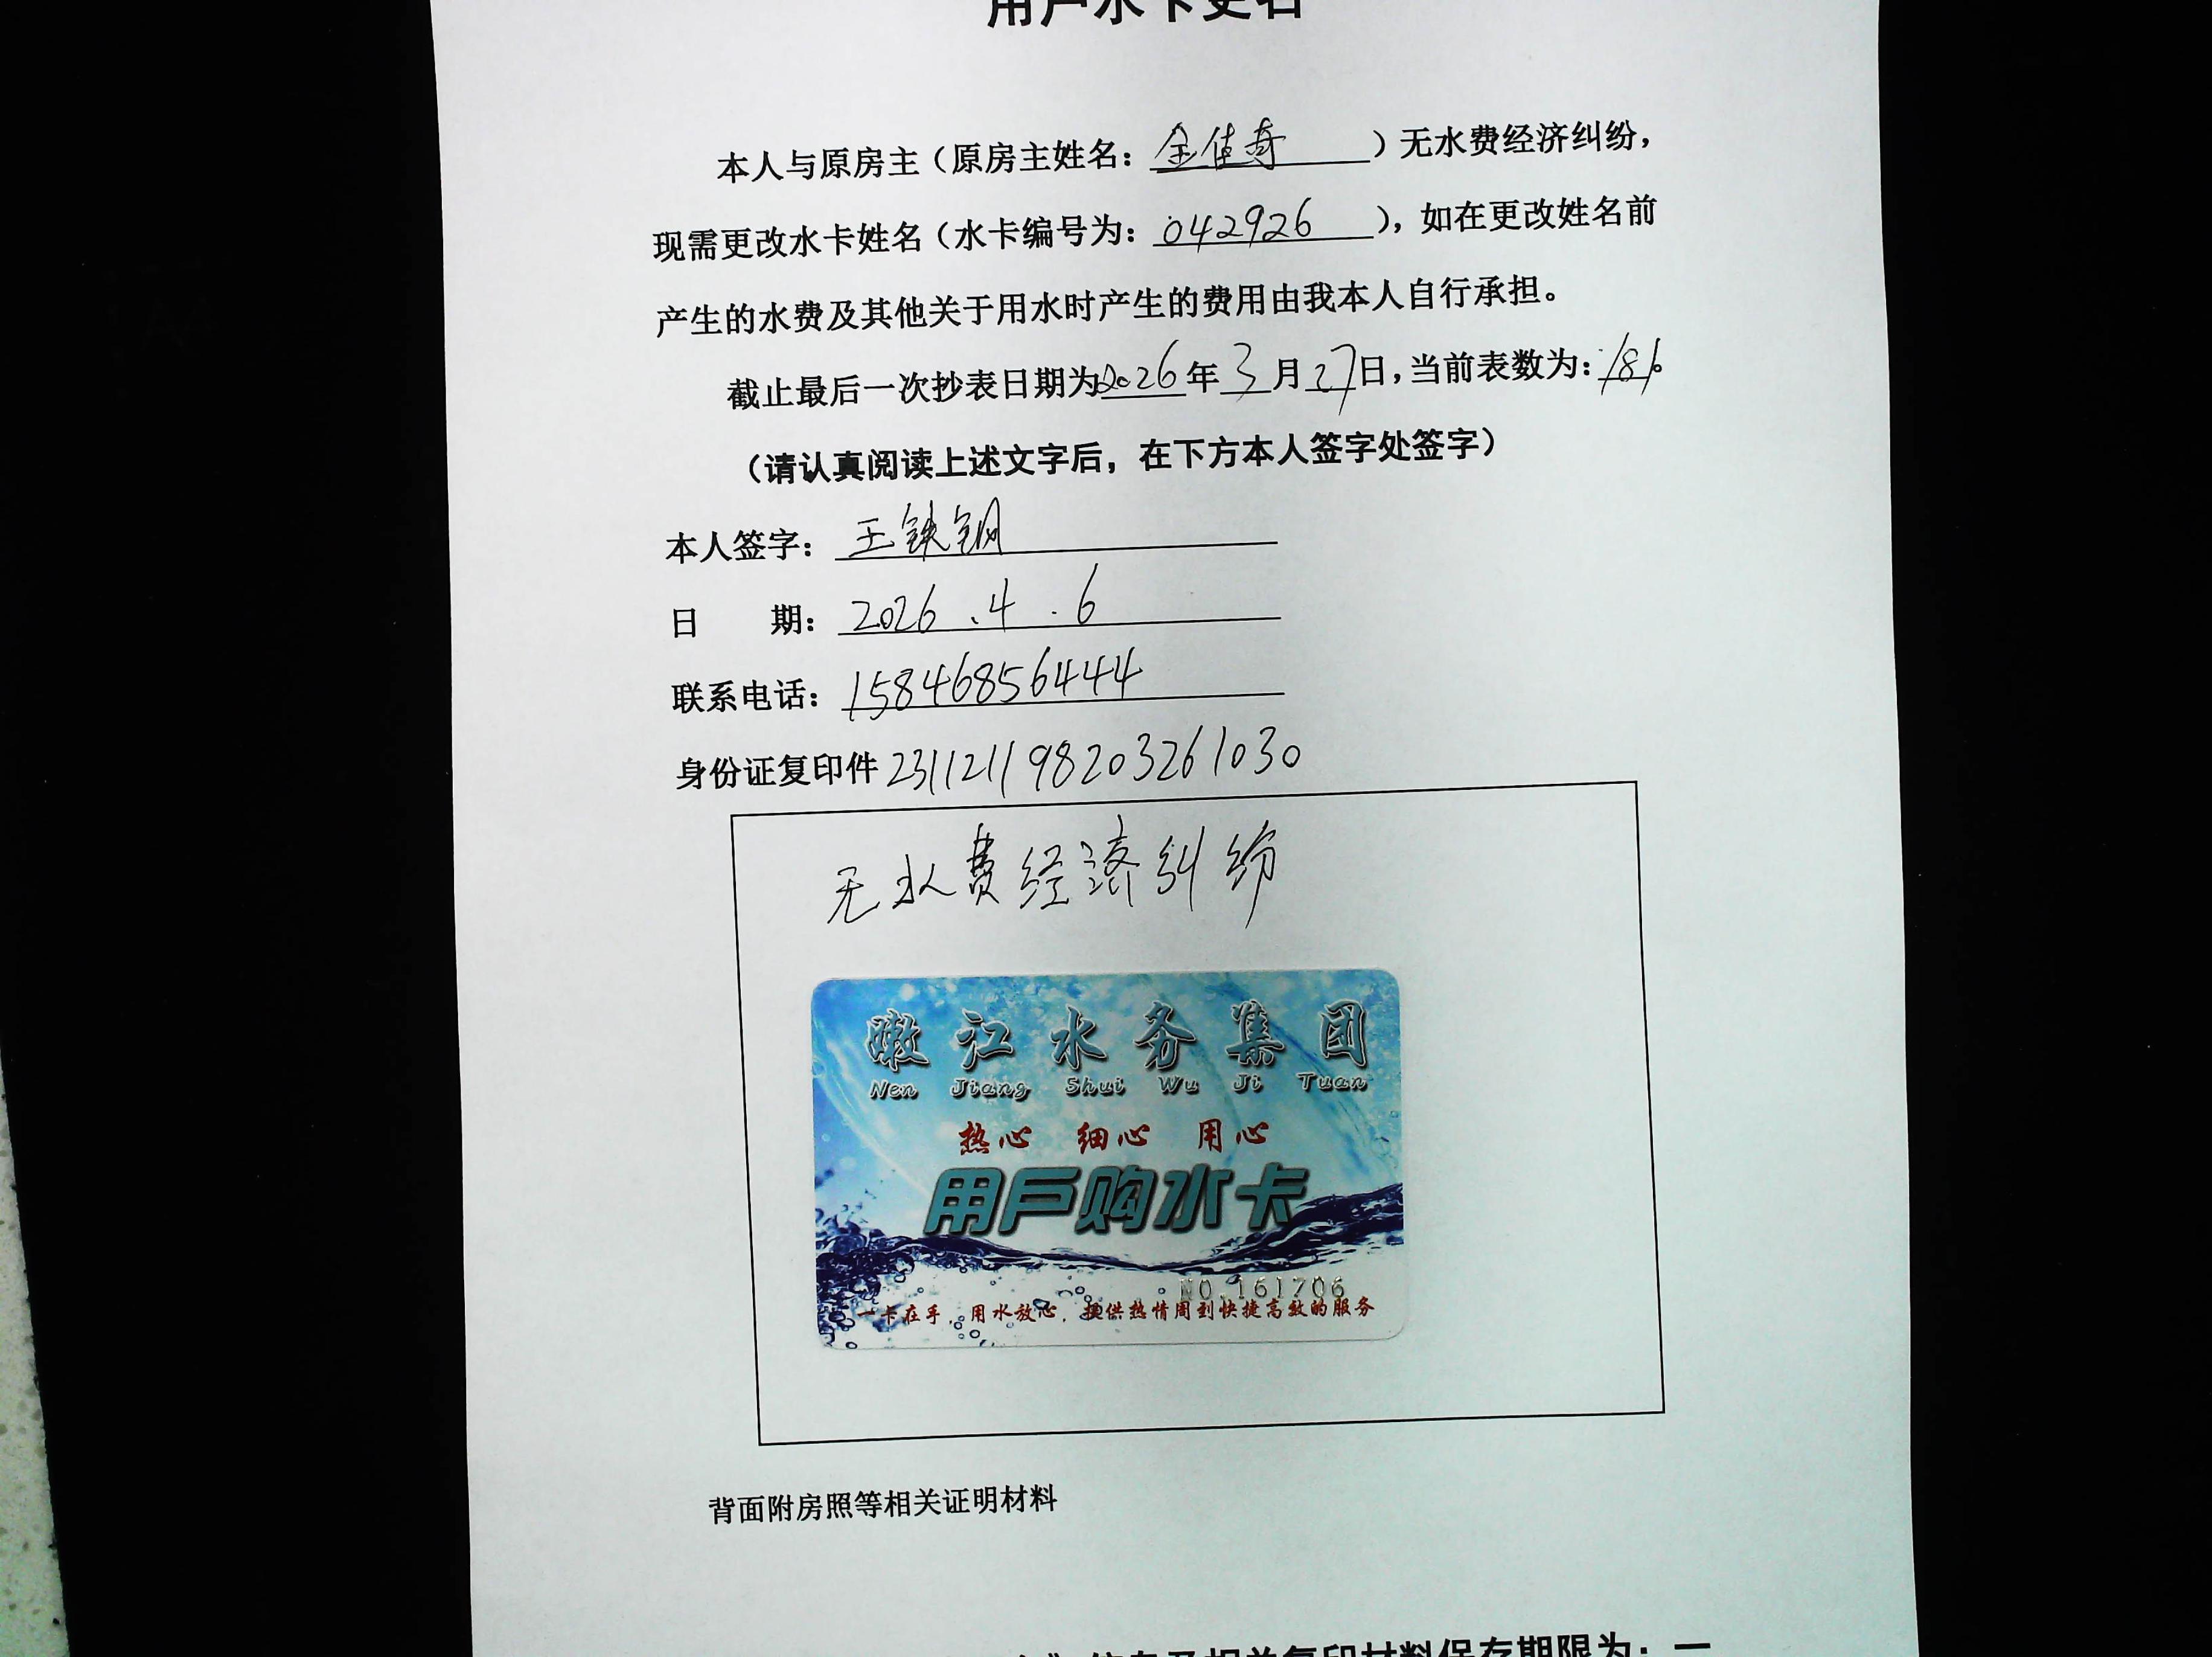 用户水卡更名
本人与原房主（原房主姓名：金佳奇）无水费经济纠纷，
现需更改水卡姓名（水卡编号为：042926），如在更改姓名前
产生的水费及其他关于用水时产生的费用由我本人自行承担。
截止最后一次抄表日期为2026年3月27日，当前表数为：181。
（请认真阅读上述文字后，在下方本人签字处签字）
本人签字：王铁钢
日期：2026.4.6
联系电话：15846856444
身份证复印件 231121198203261030
无水费经济纠纷
嫩江水务集团
Nen Jiang Shui Wu Ji Tuan
热心 细心 用心
用户购水卡
NO.161706
一卡在手，用水放心，提供热情周到快捷高效的服务
背面附房照等相关证明材料
信息及相关复印材料保存期限为：一